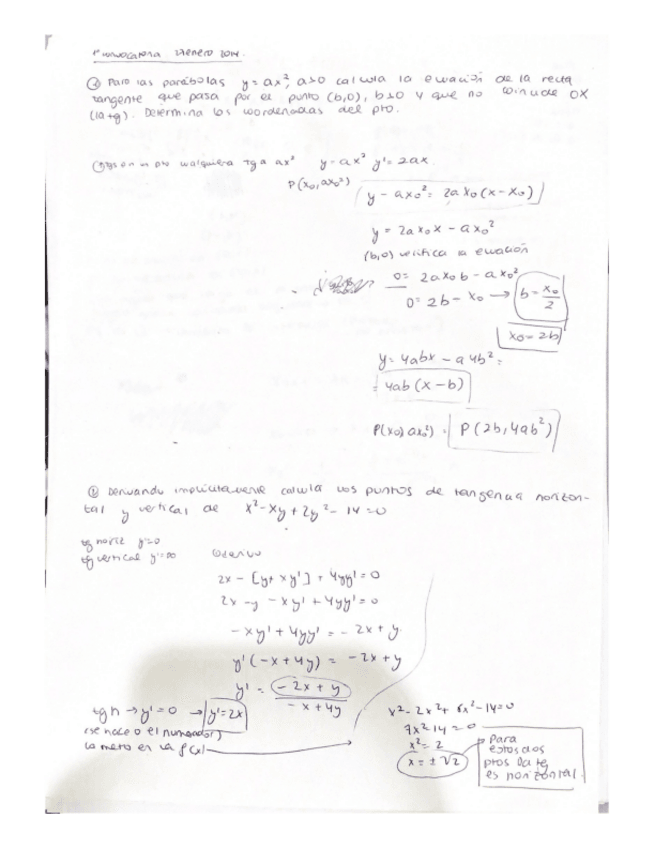 1ª convocatoria 27 enero 2014.
② Para las parábolas y = ax², a>0 calcula la ecuación de la recta
tangente que pasa por el punto (b,0), b>0 y que no coincide OX
(la tg). Determina las coordenadas del pto.
en un pto cualquiera tg a ax² y = ax² y' = 2ax.
P(x₀, ax₀²)
y - ax₀² = 2ax₀(x - x₀)
y = 2ax₀x - ax₀²
(b,0) verifica la ecuación
0 = 2ax₀b - ax₀²
0 = 2b - x₀ → b = x₀/2
x₀ = 2b
y = 4abx - a4b² =
= 4ab(x - b)
P(x₀, ax₀²) = P(2b, 4ab²)
① Derivando implícitamente calcula los puntos de tangencia horizon-
tal y vertical de x² - xy + 2y² - 14 = 0
tg horiz y' = 0
tg vertical y' = ∞ derivo
2x - [y + xy'] + 4yy' = 0
2x - y - xy' + 4yy' = 0
- xy' + 4yy' = - 2x + y
y'(-x + 4y) = -2x + y
y' = (-2x + y)/(-x + 4y)
tg h → y' = 0 → y' = 2x
(se hace 0 el numerador)
lo meto en la f(x)
x² - 2x² + 8x² - 14 = 0
7x² 14 = 0
x² = 2
x = ± √2
Para
estos dos
ptos la tg
es horizontal